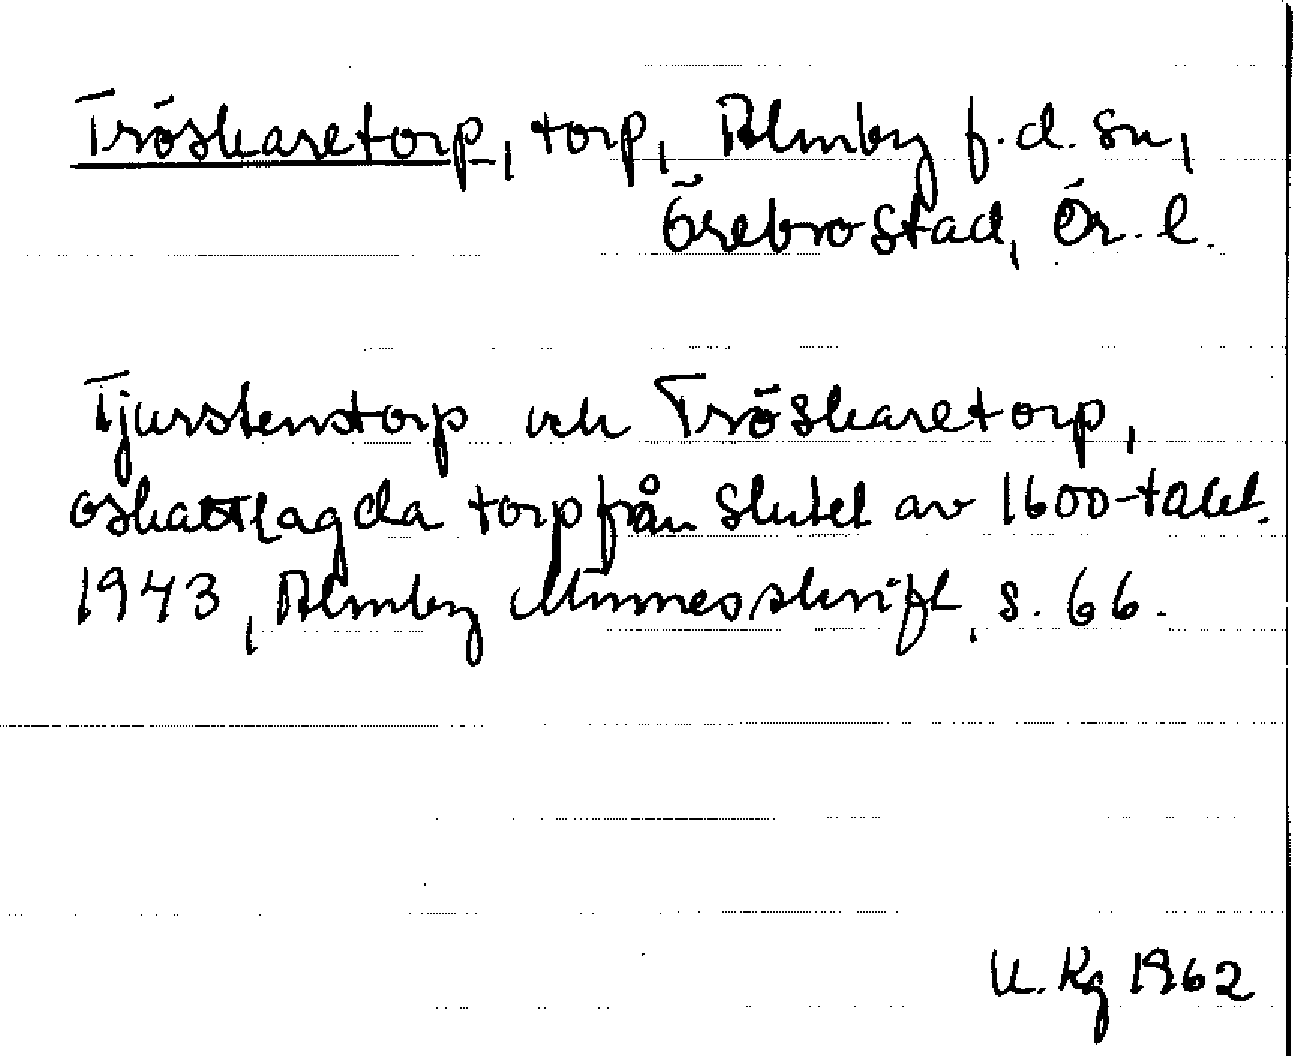 Tröskaretorp, torp, Almby f.d. sn,
Örebro stad, Ör. l.
Tjurstenstorp och Tröskaretorp,
oskattlagda torp från slutet av 1600-talet.
1943, Almby Minnesskrift, s. 66.
U. Kg 1962